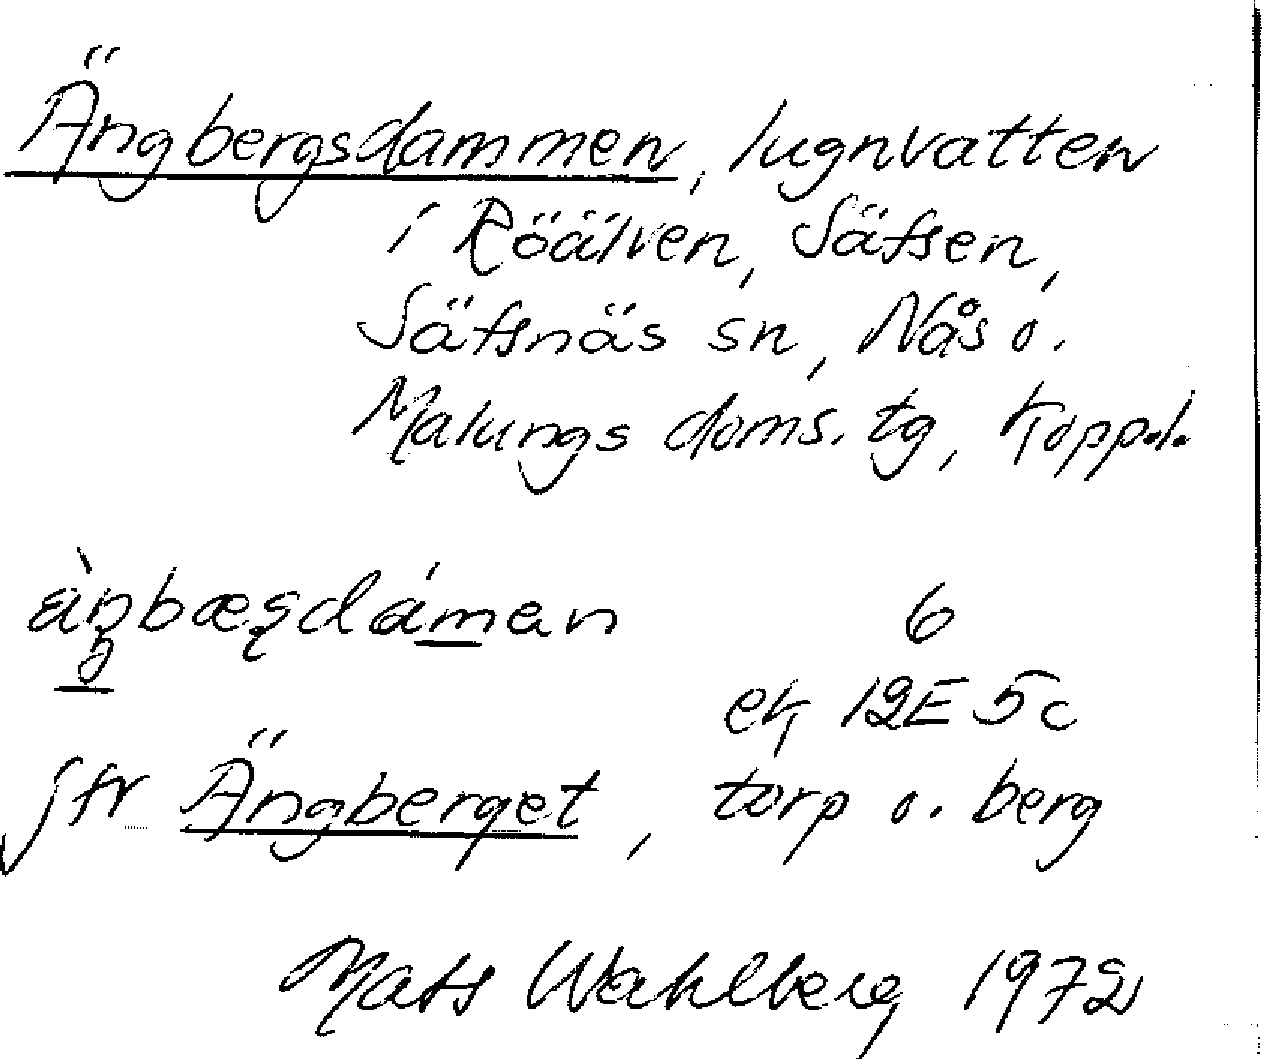 Ängbergsdammen, lugnvatten
i Röälven, Säfsen,
Säfsnäs sn, Nås o.
Malungs doms. tg, Koppb.
6
ek 12E 5c
jfr Ängberget, torp o. berg
Mats Wahlberg 1972